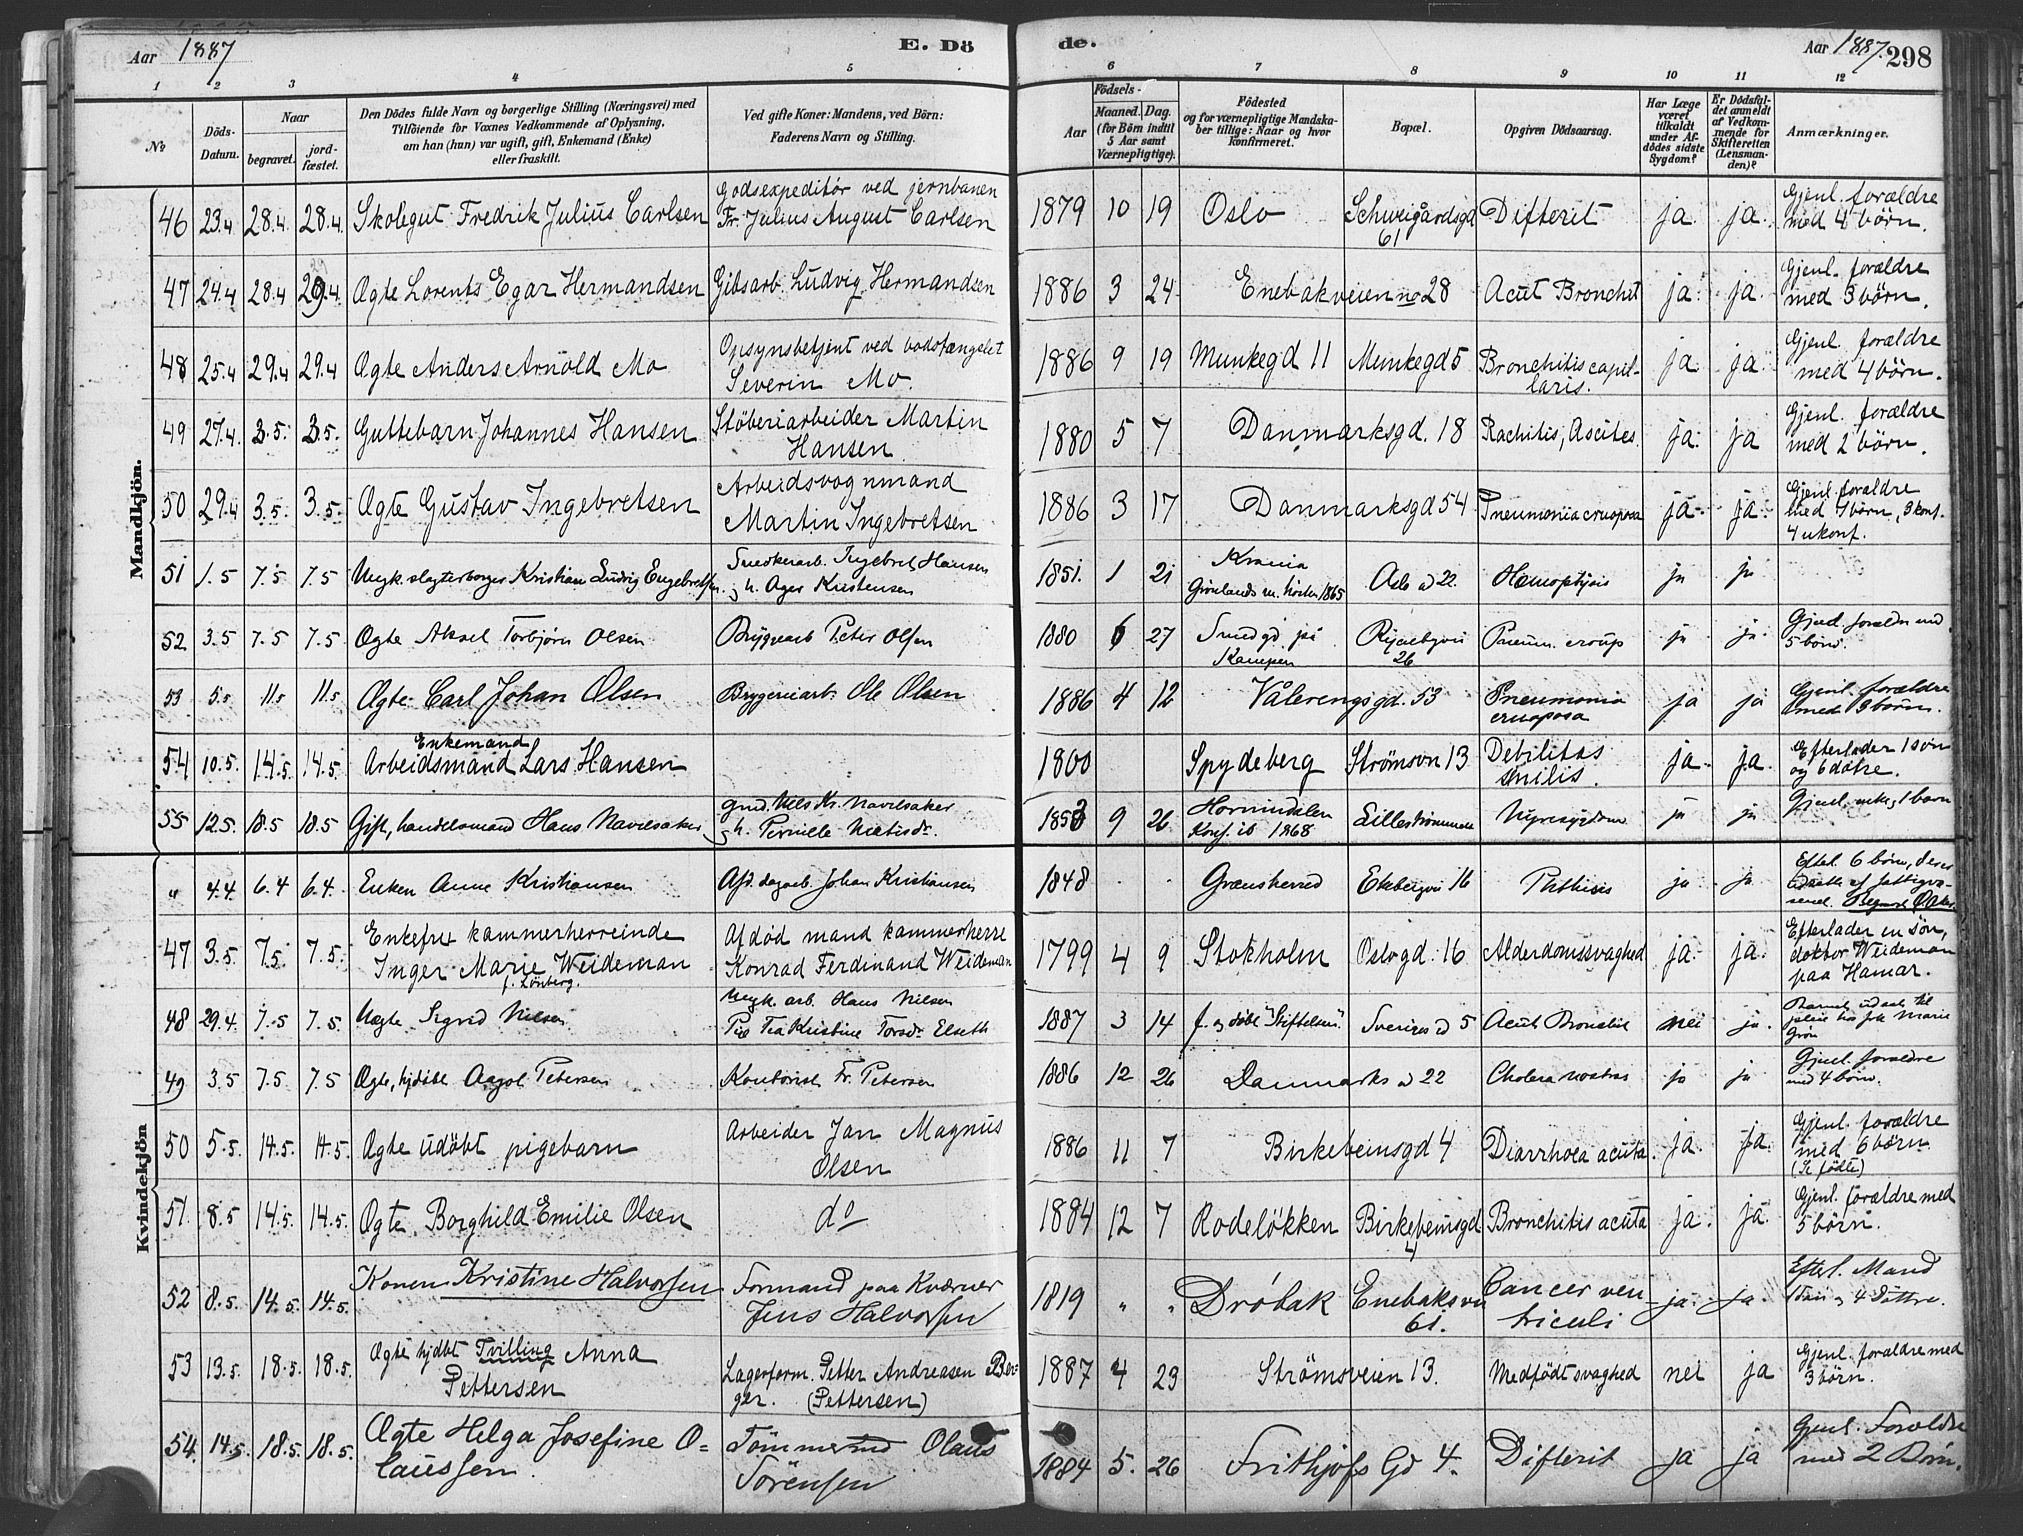 Aar 1887
E. Dö
de.
Aar 1887.
298
1 2 3 4 5 6 7 8 9 10 11 12
No
Döds-Datum.
Naar
begravet.
jord-fæstet.
Den Dödes fulde Navn og borgerlige Stilling (Næringsvei) med
Tilföiende for Voxnes Vedkommende af Oplysning,
om han (hun) var ugift, gift, Enkemand (Enke)
eller fraskilt.
Ved gifte Koner: Mandens, ved Börn:
Faderens Navn og Stilling.
Födsels-
Aar
Maaned. Dag.
(for Börn indtil
5 Aar samt
Værnepligtige).
Födested
og for værnepligtige Mandska-
ber tillige: Naar og hvor
konfirmeret.
Bopæl.
Opgiven Dödsaarsag.
Har Læge
været
tilkaldt
under Af-
dödes sidste
Sygdom?
Er Dödsfal-
det anmeldt
af Vedkom-
mende for
Skifteretten
(Lensman-
den)?
Anmærkninger.
Mandkjön.
46 23.4 28.4 28.4 Skolegut Fredrik Julius Carlsen
Godsexpeditör ved jernbanen
Fr. Julius August Carlsen
1879 10 19 Oslo Schweigårdsgd
61
Difterit ja ja.
Gjenl. forældre
med 4 börn.
47 24.4 28.4 29.4 Ægte Lorents Egar Hermandsen Gibsarb. Ludvig Hermandsen
1886 3 24 Enebakveien no 28 Acut Bronchit ja ja.
Gjenl. forældre
med 3 börn.
48 25.4 29.4 29.4 Ægte Anders Arnold Mo
Opsynsbetjent ved bodsfængslet
Severin Mo.
1886 9 19 Munkegd 11 Munkegd 5 Bronchitis capil-
laris.
ja ja.
Gjenl. forældre
med 4 börn.
49 27.4. 3.5. 3.5. Guttebarn Johannes Hansen
Stöberiarbeider Martin
Hansen
1880 5 7 Danmarksgd. 18 Rachitis, Ascites ja. ja
Gjenl. forældre
med 2 börn.
50 29.4 3.5. 3.5. Ægte Gustav Ingebretsen
Arbeidsvognmand
Martin Ingebretsen
1886 3 17 Danmarksgd 54 Pneumonia cruoposa ja. ja.
Gjenl. forældre
med 1 börn, 3 konf.
4 ukonf.
51 1.5 7.5 7.5 Ungk. slagterborger Kristian Ludvig Engebretsen.
Snedkerarb. Ingebret Hansen
h. Kristensen
1851. 1 21
Grönlands m. hösten 1865
22. Hæmoptysis ja ja
52 3.5 7.5 7.5 Ægte Aksel Torbjørn Olsen Bryggearb Peter Olsen
1880 6 27 Smedgd på
Kampen
26 Pneum. croup ja ja.
Gjenl. forældre med
5 börn.
53 5.5 11.5 11.5 Ægte Carl Johan Olsen Bryggeriarb. Ole Olsen
1886 4 12 Vålerengsgd. 53 Pneumonia
cruoposa
ja ja
Gjenl. forældre
med 3 börn.
54 10.5. 14.5. 14.5.
Enkemand
Arbeidsmand Lars Hansen
1800 Spydeberg Strømsvn 13 Debilitas
senilis.
ja. ja.
Efterlader 1 sön
og 6 døtre.
55 12.5. 18.5 18.5 Gift, handelsmand Hans Navelsaker
Nils Kr. Navelsaker
h. Pernille
1853 9 26 Hornindalen
Konf. ib 1868
Nyresygdom ja ja
Gjenl. enke, 1 barn
Kvindekjön
" 4.4. 6.4 6.4. Enken Anne Kristiansen Afd. dagarb. Johan Kristiansen
1848 . . Grænsherred Ekebergvn 16 Phthisis ja ja
Efterl. 6 börn, deres
47 3.5. 7.5 7.5.
Enkefru kammerherreinde
Inger Marie Weideman
f. Lönberg.
Afdöd mand kammerherre
Konrad Ferdinand Weideman
1799 4 9 Stokholm Oslogd. 16 Alderdomssvaghed ja. ja.
Efterlader en sön,
doktor Weideman
paa Hamar.
48 29.4. 7.5 7.5. Uægte Sigrid Nielsen
Ungk. arb. Hans Nielsen
Pie Tea Kristine Torsdr. Elseth
1887 3 14 f. og döbt "Stiftelsen". 5 Acut Bronchit nei ja.
Marie
49 3.5 7.5 7.5 Ægte, hjdöbt Aagot Petersen Kontorist Fr. Petersen
1886 12 26 Danmarks 22 Cholera nostras ja ja
Gjenl. forældre
med 4 börn.
50 5.5. 14.5. 14.5. Ægte udöbt pigebarn
Arbeider Jan Magnus
Olsen
1886 11 7 Birkebeinsgd 4 Diarrhoea acuta. ja. ja.
Gjenl. forældre
med 6 börn
51. 8.5 14.5. 14.5. Ægte Borghild Emilie Olsen do
1884 12 7 Rodeløkken Birkebeinsgd
4
Bronchitis acuta ja. ja.
Gjenl. forældre med
5 börn.
52 8.5. 14.5. 14.5. Konen Kristine Halvorsen
Formand paa Kværner
Jens Halvorsen
1819 " " Dröbak Enebaksvn
61.
Cancer ven-
triculi
ja. ja.
Efterl. Mand
4 Döttre.
53 13.5. 18.5 18.5. Ægte hjdbt Tvilling Anna
Pettersen
Lagerform. Petter Andreasen Ber-
ger. (Pettersen)
1887 4 23 Strömsveien 13. Medfödt svaghed nei ja
Gjenl. forældre med
3 börn.
54. 14.5. 18.5. 18.5. Ægte Helga Josefine O=
laussen.
Tömmermd Olaus
Sörensen
1884 5. 26 Frithjofs Gd 4. Difterit ja ja
Gjenl. Forældre
med 2 Börn.